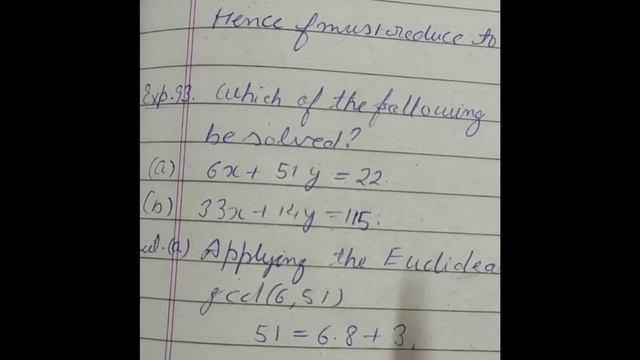 Hence f must reduce to
Exp.93. Which of the following
be solved?
(a) 6x + 51y = 22.
(b) 33x + 14y = 115.
(a) Applying the Euclidea
gcd(6,51)
51 = 6.8 + 3.